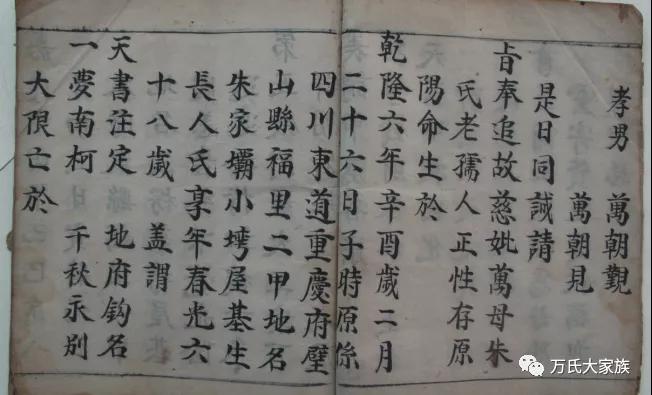 孝男 萬朝覲
萬朝見
是日同誠請
旨奉追故慈妣萬母朱
氏老孺人正性存原
陽命生於
乾隆六年辛酉歲二月
二十六日子時原係
四川東道重慶府璧
山縣福里二甲地名
朱家壩小塆屋基生
長人氏享年春光六
十八歲 蓋謂
天書注定 地府鈎名
一夢南柯 千秋永別
大限亡於
万氏大家族